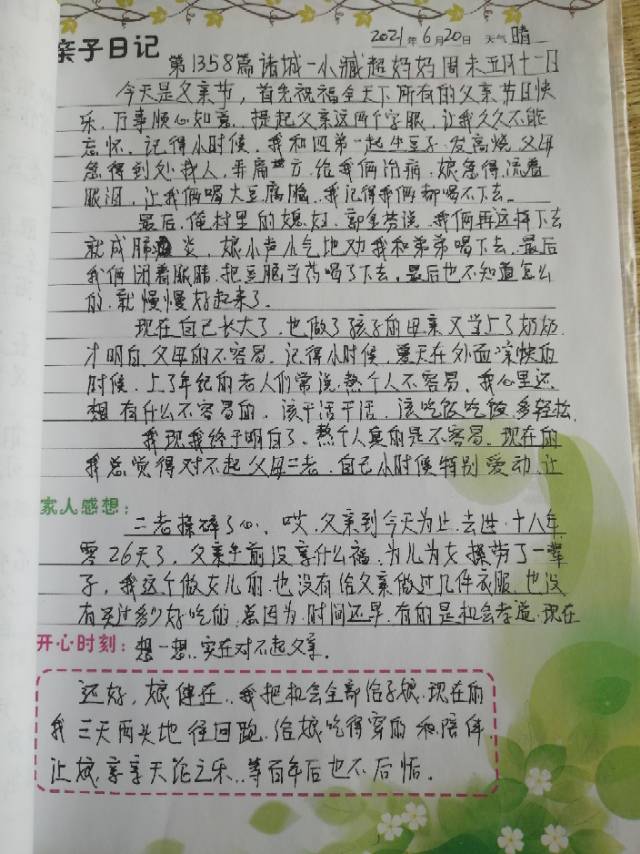 亲子日记
2021年6月20日 天气晴
第1358篇诸城一小臧超妈妈周末五月十一日
今天是父亲节,首先祝福全天下所有的父亲节日快
乐,万事顺心如意,提起父亲这两个字眼,让我久久不能
忘怀。记得小时候,我和四弟一起生豆子,发高烧,父母
急得到处找人,弄偏方,给我俩治病,娘急得流着
眼泪,让我俩喝大豆腐脑,我记得我俩都喝不下去。
最后,俺村里的媳妇,郭金芳说,我俩再这样下去
就成肺炎,娘小声小气地劝我和弟弟喝下去,最后
我俩闭着眼睛,把豆脑当药喝了下去,最后也不知道怎么
的,就慢慢好起来了。
现在自己长大了,也做了孩子的母亲又当上了奶奶,
才明白父母的不容易。记得小时候,夏天在外面凉快的
时候,上了年纪的老人们常说,熬个人不容易,我心里还
想有什么不容易的,该干活干活,该吃饭吃饭,多轻松,
我现我终于明白了,熬个人真的是不容易,现在的
我总觉得对不起父母二老,自己小时候特别爱动,让
家人感想:
二老操碎了心,哎,父亲到今天为止,去世十八年
零26天了,父亲生前没享什么福,为儿为女操劳了一辈
子,我这个做女儿的,也没有给父亲做过几件衣服,也没
有买过多少好吃的,总因为,时间还早,有的是机会孝道,现在
开心时刻:想一想,实在对不起父亲。
还好,娘健在,我把机会全部给了娘,现在的
我三天两头地往回跑,给娘吃得穿的和陪伴,
让娘享享天伦之乐,等百年后也不后悔。